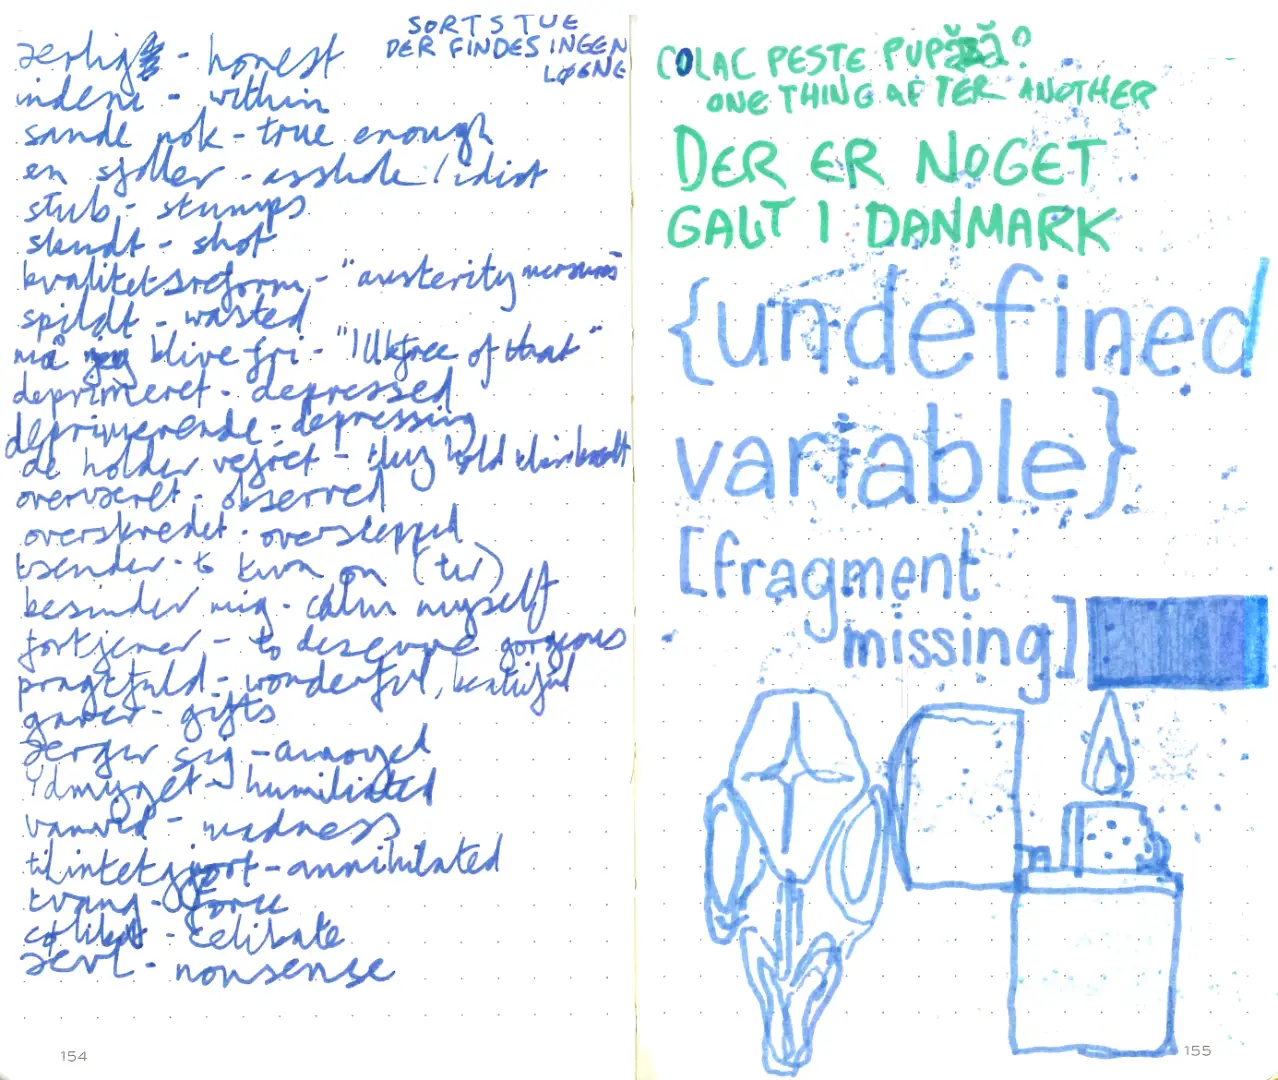 SORTSTUE
DER FINDES INGEN
LØGNE
ærlig - honest
indeni - within
sande nok - true enough
en sjoller - asshole / idiot
stub - stumps
skudt - shot
kvalitetsreform - "austerity
spildt - wasted
må jeg blive fri - "I'll be free of that"
deprimeret - depressed
deprimerende - depressing
de holder vejret - they hold
overværet - observed
overskredet - overstepped
tænder - to turn on (
besinder mig - calm myself
fortjener - to deserve gorgeous
pragtfuld - wonderful, beautiful
gaver - gifts
ærger sig - annoyed
Ydmyget - humiliated
vanvid - madness
tilintetgjort - annihilated
tvang - force
- celibate
ævl - nonsense
154
COLAC PESTE PUPĂZĂ?
ONE THING AFTER ANOTHER
DER ER NOGET
GALT I DANMARK
{undefined
variable}
[fragment
missing]
155